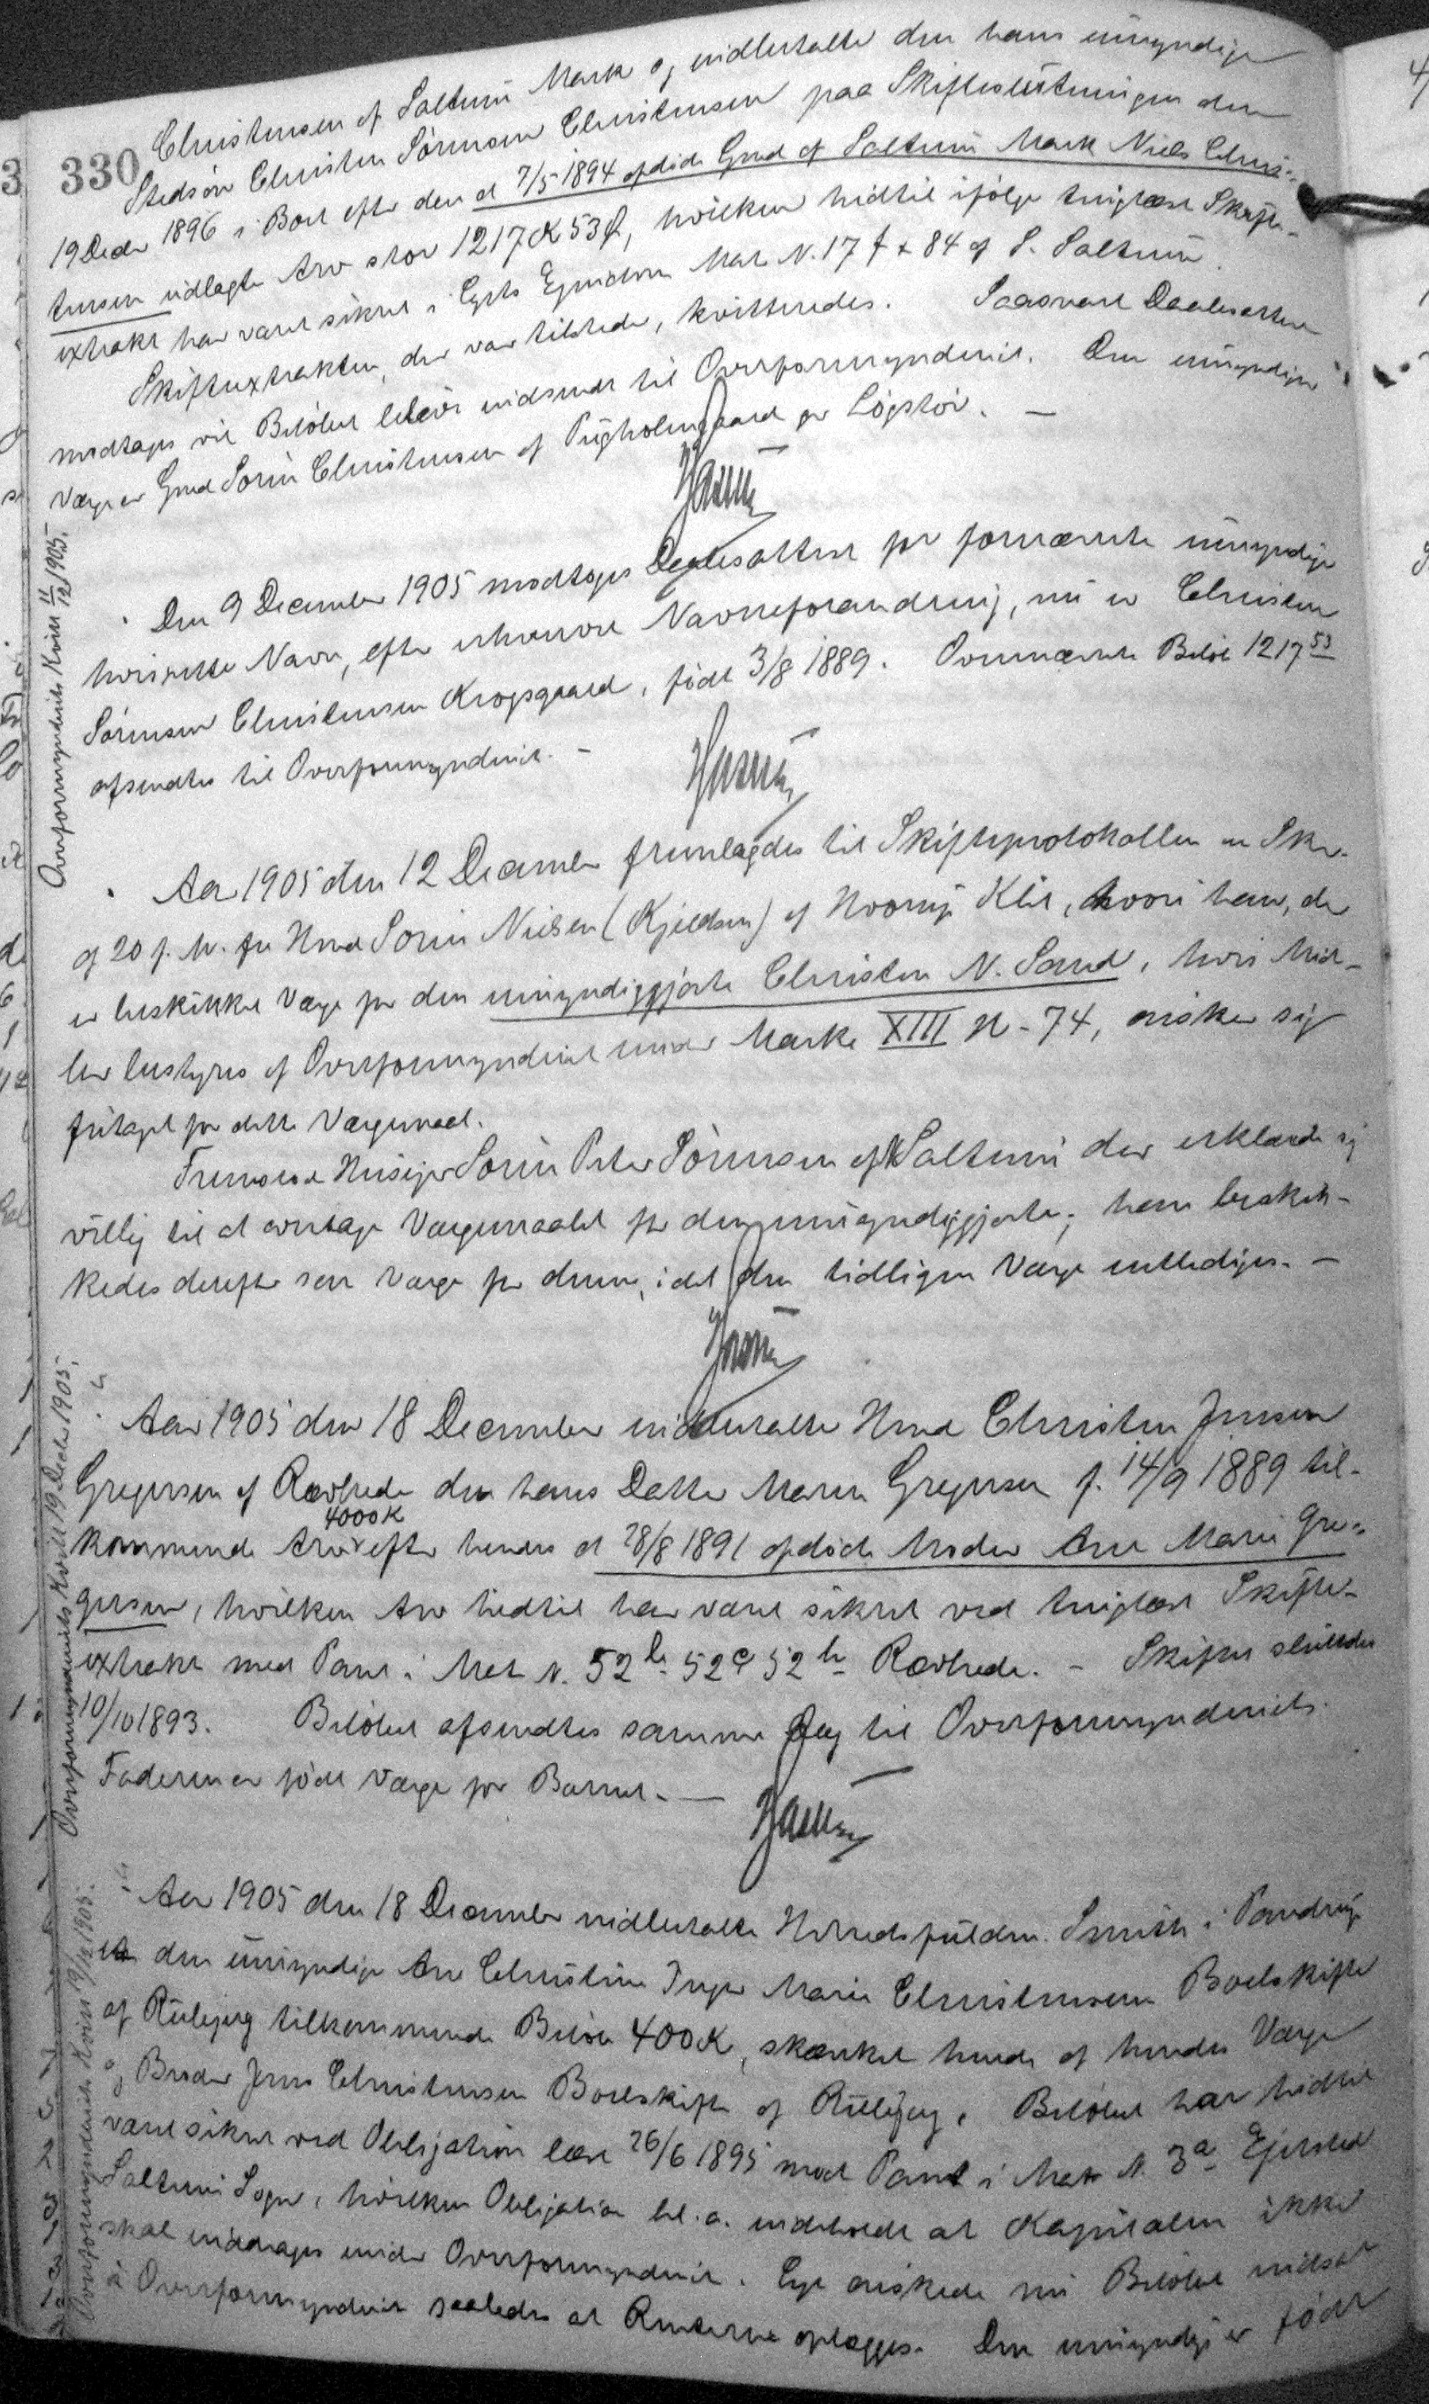 330
Christensen af Saltum Mark og indbetalte den hans umyndige
Stedsön Christen Sörensen Christensen paa Skifteslutningen den
19 Decbr 1896 i Boet efter den d 7/5 1894 afdöde Gmd af Saltum Mark Niels Chris-
tensen udlagte Arv stor 1217 K 53 Ø, hvilken hidtil ifölge tinglæst Skifte-
extrakt har været sikret i Ejendom Matr N. 17 f + 84 af S. Saltum.
Skifteextrakten, der var tilstede, kvitteredes. Saasnart Daabsattest
modtages vil Belöbet blive indsendt til Overformynderiet. Den umyndiges
Værge er Gmd Sörin Christensen af gaard pr Lögstör. —
Den 9 December 1905 modtoges Daabsattest for fornævnte umyndige
hvis rette Navn, efter erhvervet Navneforandring, nu er Christen
Sörensen Christensen Krogsgaard, födt 3/8 1889. Ovennævnte Belöb 1217 53
afsendtes til Overformynderiet. —
Overformynderiets Kvitt 11/12 1905.
Aar 1905 den 12 December fremlagdes til Skifteprotokollen en Skr.
af 20 f. M. fra Hmd Sörin Nielsen (Kjeldsen) af Hvorup Klit, hvori han, der
er beskikket Værge for den umyndiggjorte Christen N. Sand, hvis Mid-
ler bestyres af Overformynderiet under Mærke XIII N - 74, önsker sig
fritaget for dette Værgemaal.
Fremstod Husejer Sörin Peter Sörensen af N Saltum der erklærede sig
villig til at overtage Værgemaalet for den umyndiggjorte; han beskik-
kedes derefter som Værge for denne, idet den tidligere Værge entlediges. —
Aar 1905 den 18 December indbetalte Hmd Christen Jensen
Gregersen af Rævhede den hans Datter Maren Gregersen f. 14/9 1889 til-
4000 K
kommende Arv efter hendes d 28/8 1891 afdöde Moder Ane Marie Gre-
gersen, hvilken Arv hidtil har været sikret ved tinglæst Skifte-
extrakt med Pant i Matr N. 52 b 52 e 52 h Rævhede. - Skiftet sluttedes
10/10 1893. Belöbet afsendtes samme Dag til Overformynderiet.
Faderen er födt Værge for Barnet. —
Overformynderiets Kvitt 19 Decbr 1905.
Aar 1905 den 18 December indbetalte Herredsfuldm. Smith i Pandrup
den umyndige Ane Christine Inger Marie Christensen Boelskifte
af Rubjerg tilkommende Belöb 400 K, skænket hende af hendes Værge
og Broder Jens Christensen Boelskifte af Rubjerg. Belöbet har hidtil
været sikret ved Obligation læst 26/6 1895 med Pant i Matr N. 3 a Ejersted
Saltum Sogn, hvilken Obligation bl. a. indeholdt at Kapitalen ikke
skal inddrages under Overformynderiet. Ejer önskede nu Belöbet indsat
i Overformynderiet saaledes at Renterne oplægges. Den umyndige er födt
Overformynderiets Kvitt 19/12 1905.